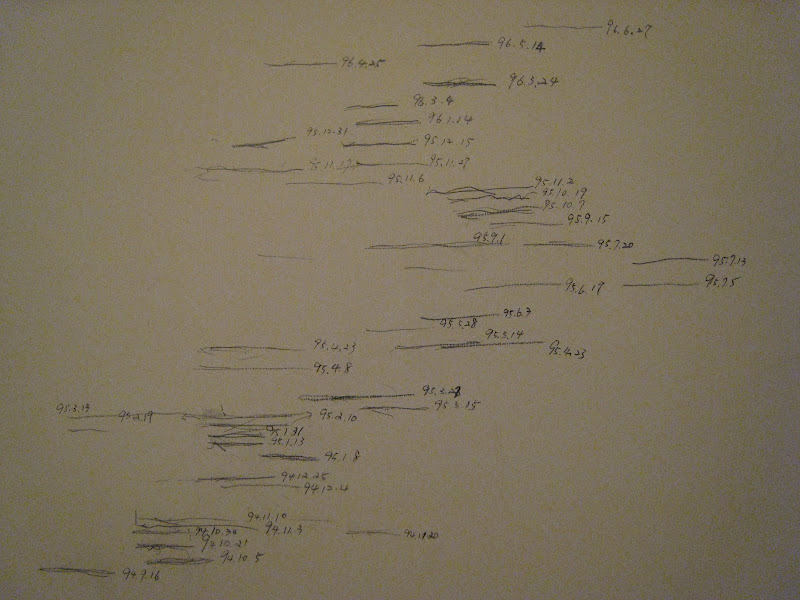 96.6.27
96.5.14
96.4.25
96.3.24
96.3.4
96.1.14
95.12.31
95.12.15
95.11.27
95.11.27
95.11.6
95.11.2
95.10.19
95.10.7
95.9.15
95.9.1
95.7.20
95.7.13
95.6.19
95.7.5
95.6.3
95.5.28
95.5.14
95.4.23
95.4.23
95.4.8
95.3.28
95.3.15
95.3.19
95.2.19
95.2.10
95.1.31
95.1.13
95.1.8
94.12.25
94.12.4
94.11.10
94.11.3
94.10.30
94.11.20
94.10.21
94.10.5
94.9.16